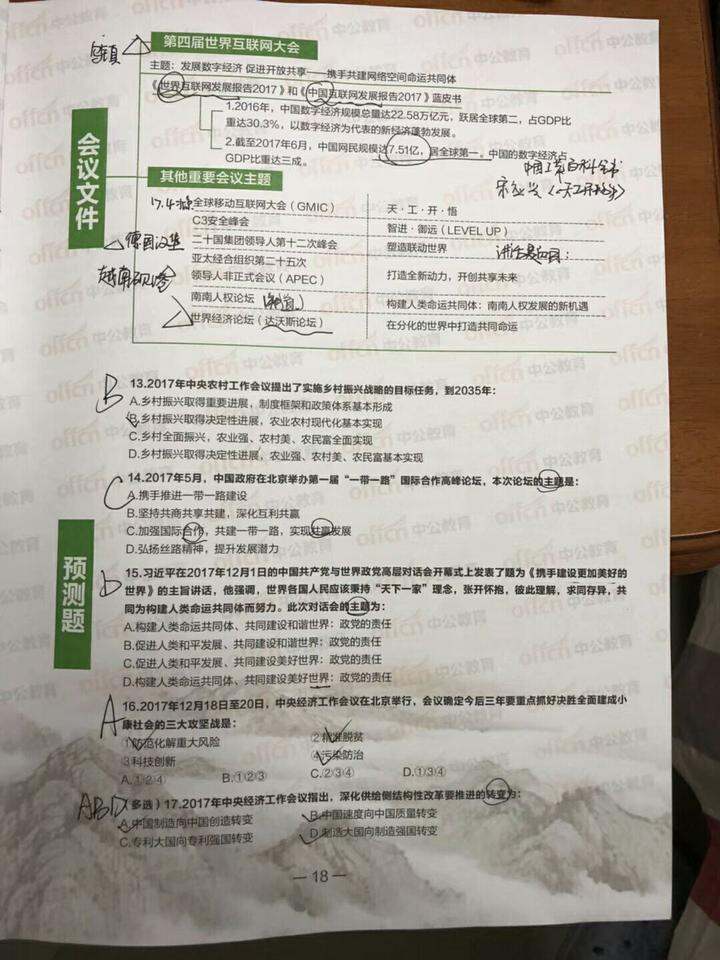 第四届世界互联网大会
主题：发展数字经济 促进开放共享——携手共建网络空间命运共同体
《世界互联网发展报告2017》和《中国互联网发展报告2017》蓝皮书
1.2016年，中国数字经济规模总量达22.58万亿元，跃居全球第二，占GDP比
重达30.3%，以数字经济为代表的新经济蓬勃发展。
2.截至2017年6月，中国网民规模达7.51亿，居全球第一。中国的数字经济占
GDP比重达三成。
会议文件
其他重要会议主题
全球移动互联网大会（GMIC） 天·工·开·悟
C3安全峰会 智进·御远（LEVEL UP）
德国汉堡 二十国集团领导人第十二次峰会 塑造联动世界
越南岘港 亚太经合组织第二十五次
领导人非正式会议（APEC） 打造全新动力，开创共享未来
南南人权论坛 构建人类命运共同体：南南人权发展的新机遇
世界经济论坛（达沃斯论坛） 在分化的世界中打造共同命运
B
13.2017年中央农村工作会议提出了实施乡村振兴战略的目标任务，到2035年：
A.乡村振兴取得重要进展，制度框架和政策体系基本形成
B.乡村振兴取得决定性进展，农业农村现代化基本实现
C.乡村全面振兴，农业强、农村美、农民富全面实现
D.乡村振兴取得决定性进展，农业强、农村美、农民富基本实现
C
14.2017年5月，中国政府在北京举办第一届“一带一路”国际合作高峰论坛，本次论坛的主题是：
A.携手推进一带一路建设
B.坚持共商共享共建，深化互利共赢
C.加强国际合作，共建一带一路，实现共赢发展
D.弘扬丝路精神，提升发展潜力
预测题
D
15.习近平在2017年12月1日的中国共产党与世界政党高层对话会开幕式上发表了题为《携手建设更加美好的
世界》的主旨讲话，他强调，世界各国人民应该秉持“天下一家”理念，张开怀抱，彼此理解，求同存异，共
同为构建人类命运共同体而努力。此次对话会的主题为：
A.构建人类命运共同体、共同建设和谐世界：政党的责任
B.促进人类和平发展、共同建设和谐世界：政党的责任
C.促进人类和平发展、共同建设美好世界：政党的责任
D.构建人类命运共同体、共同建设美好世界：政党的责任
A
16.2017年12月18日至20日，中央经济工作会议在北京举行，会议确定今后三年要重点抓好决胜全面建成小
康社会的三大攻坚战是：
①防范化解重大风险 ②精准脱贫
③科技创新 ④污染防治
A.①②④ B.①②③ C.②③④ D.①③④
ABD
（多选）17.2017年中央经济工作会议指出，深化供给侧结构性改革要推进的转变为：
A.中国制造向中国创造转变 B.中国速度向中国质量转变
C.专利大国向专利强国转变 D.制造大国向制造强国转变
— 18 —